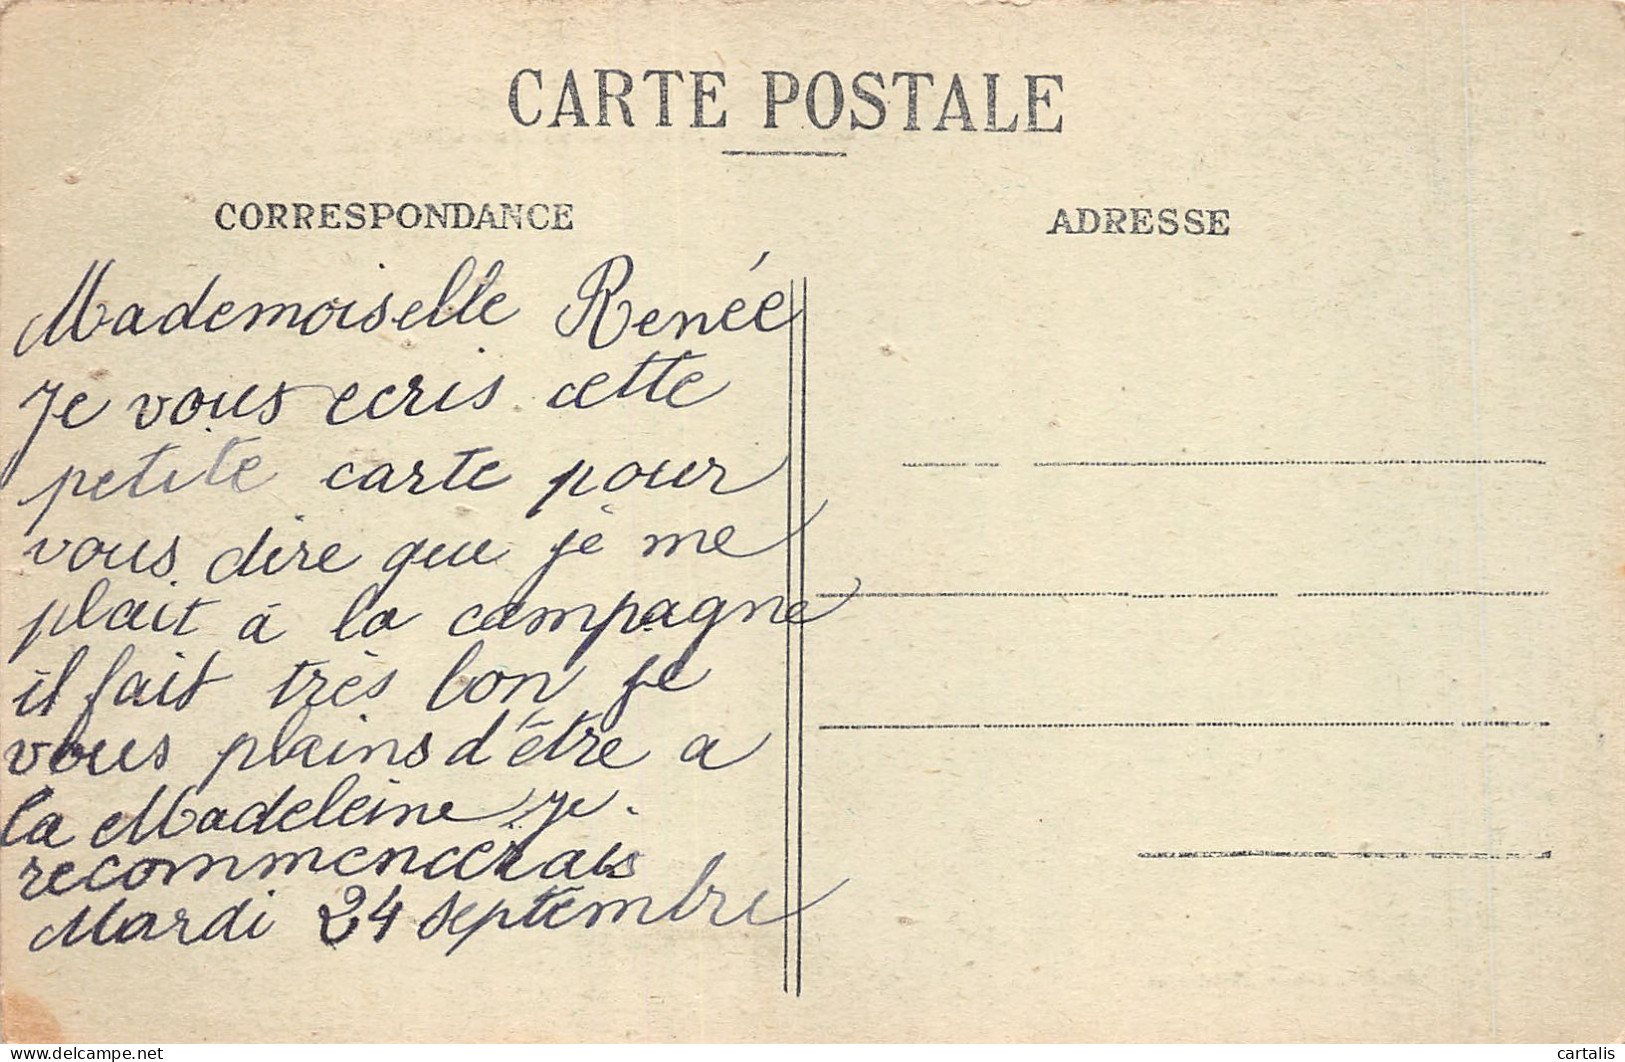 CARTE POSTALE
CORRESPONDANCE
ADRESSE
Mademoiselle Renée
Je vous ecris cette
petite carte pour
vous dire que je me
plait à la campagne
il fait très bon je
vous plains d'être a
la Madeleine je
recommencerais
Mardi 24 septembre
www.delcampe.net
cartalis